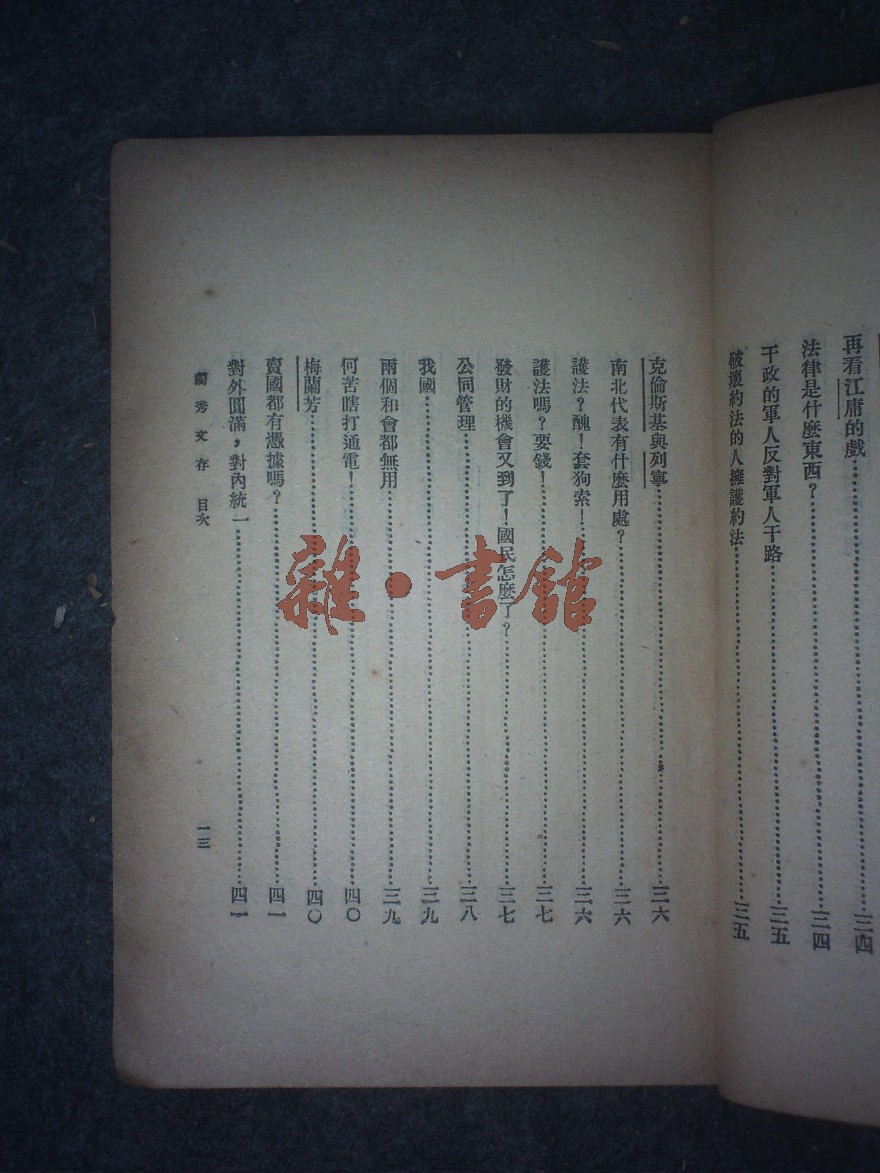 再看江庸的戲……三四
法律是什麽東西？……三四
干政的軍人反對軍人干路……三五
破壞約法的人擁護約法……三五
克倫斯基與列寧……三六
南北代表有什麽用處？……三六
護法？醜！套狗索！……三六
護法嗎？要錢！……三七
發財的機會又到了！國民怎麽了？……三七
公同管理……三八
我國……三九
兩個和會都無用……三九
何苦瞎打通電！……四〇
梅蘭芳……四〇
賣國都有憑據嗎？……四一
對外圓滿，對內統一……四一
獨秀文存 目次 一三
雜·書館